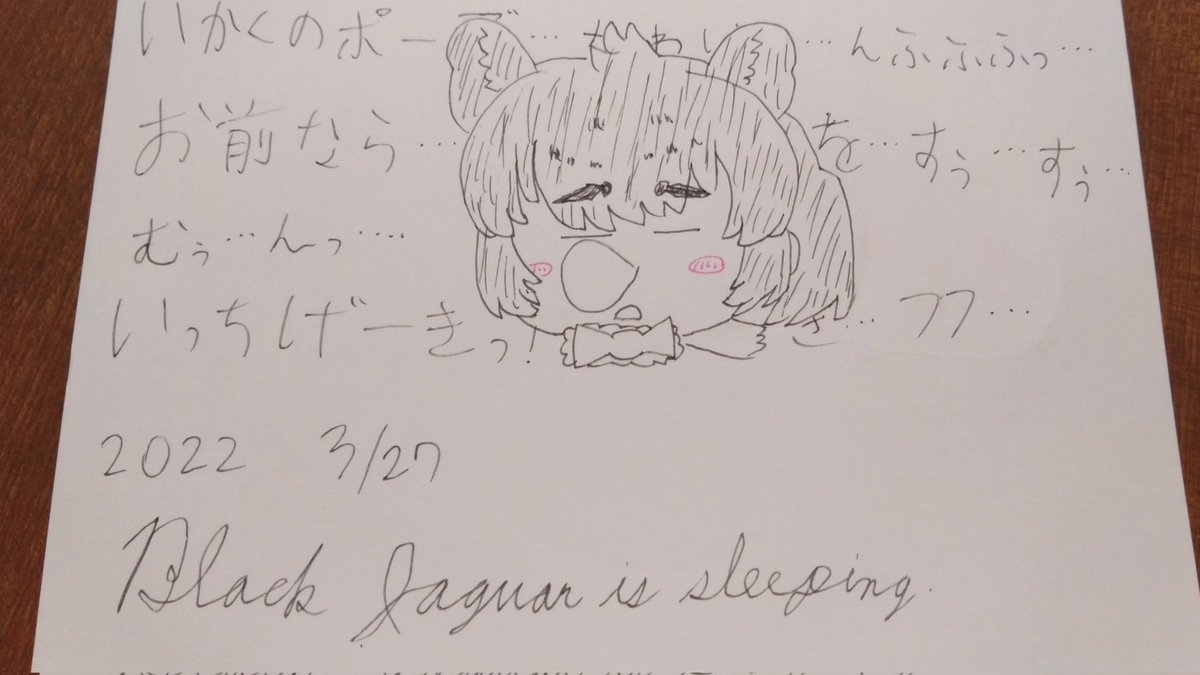 いかくのポーズ… んふふふっ…
お前なら… を…すぅ…すぅ…
むぅ…んっ…
いっちげーきっ! さ…フフ…
2022 3/27
Black Jaguar is sleeping.